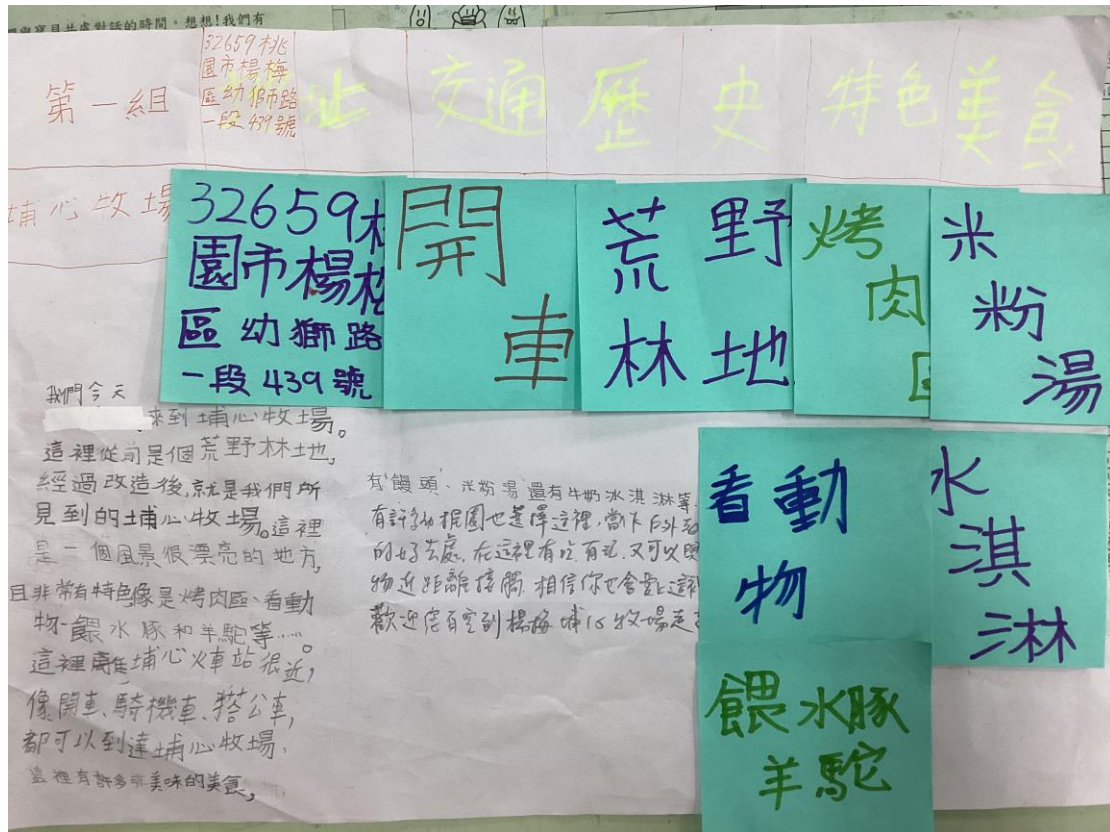 共處對話的時間。想想!我們有
第一組
32659桃
園市楊梅
區幼獅路
一段439號
址
交通
歷史
特色
美食
埔心牧場
32659
園市楊梅
區幼獅路
一段439號
開
車
荒野
林地
烤
肉
米
粉
湯
看動
物
水
淇
淋
餵水豚
羊駝
我們今天
來到埔心牧場。
這裡從前是個荒野林地,
經過改造後,就是我們所
見到的埔心牧場。這裡
是一個風景很漂亮的地方,
且非常有特色像是烤肉區、看動
物、餵水豚和羊駝等.....。
這裡離埔心火車站很近,
像開車、騎機車、搭公車,
都可以到達埔心牧場、
這裡有許多非美味的美食,
有饅頭、米粉湯還有牛奶冰淇淋等
有許多 校園也選擇這裡,當作戶外
的好去處,在這裡有吃有玩,又可以與
物近距離接觸,相信你也會愛上這裡
歡迎您有空到楊梅埔心牧場走